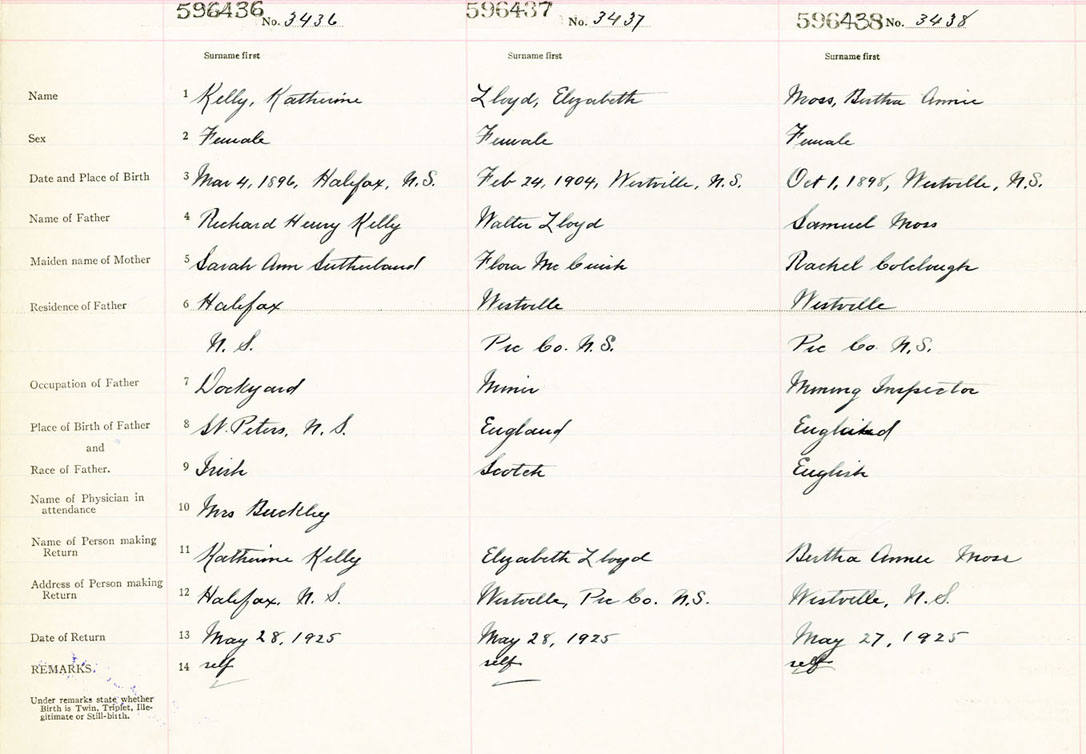 596436 No. 3436 596437 No. 3437 596438 No. 3438
Surname first Surname first Surname first
Name 1 Kelly, Katherine Lloyd, Elizabeth Moss, Bertha Annie
Sex 2 Female Female Female
Date and Place of Birth 3 Mar 4, 1896, Halifax, N.S. Feb 24, 1904, Westville, N.S. Oct 1, 1898, Westville, N.S.
Name of Father 4 Richard Henry Kelly Walter Lloyd Samuel Moss
Maiden name of Mother 5 Sarah Ann Sutherland Flora Mc Cuish Rachel Colclough
Residence of Father 6 Halifax Westville Westville
N. S. Pic Co. N.S. Pic Co. N.S.
Occupation of Father 7 Dockyard Miner Mining Inspector
Place of Birth of Father 8 St. Peters, N. S. England England
and
Race of Father. 9 Irish Scotch English
Name of Physician in
attendance 10 Mrs Buckley
Name of Person making
Return 11 Katherine Kelly Elizabeth Lloyd Bertha Annie Moss
Address of Person making
Return 12 Halifax, N. S. Westville, Pic Co. N.S. Westville, N.S.
Date of Return 13 May 28, 1925 May 28, 1925 May 27, 1925
REMARKS. 14 self self self
Under remarks state whether
Birth is Twin, Triplet, Ille-
gitimate or Still-birth.